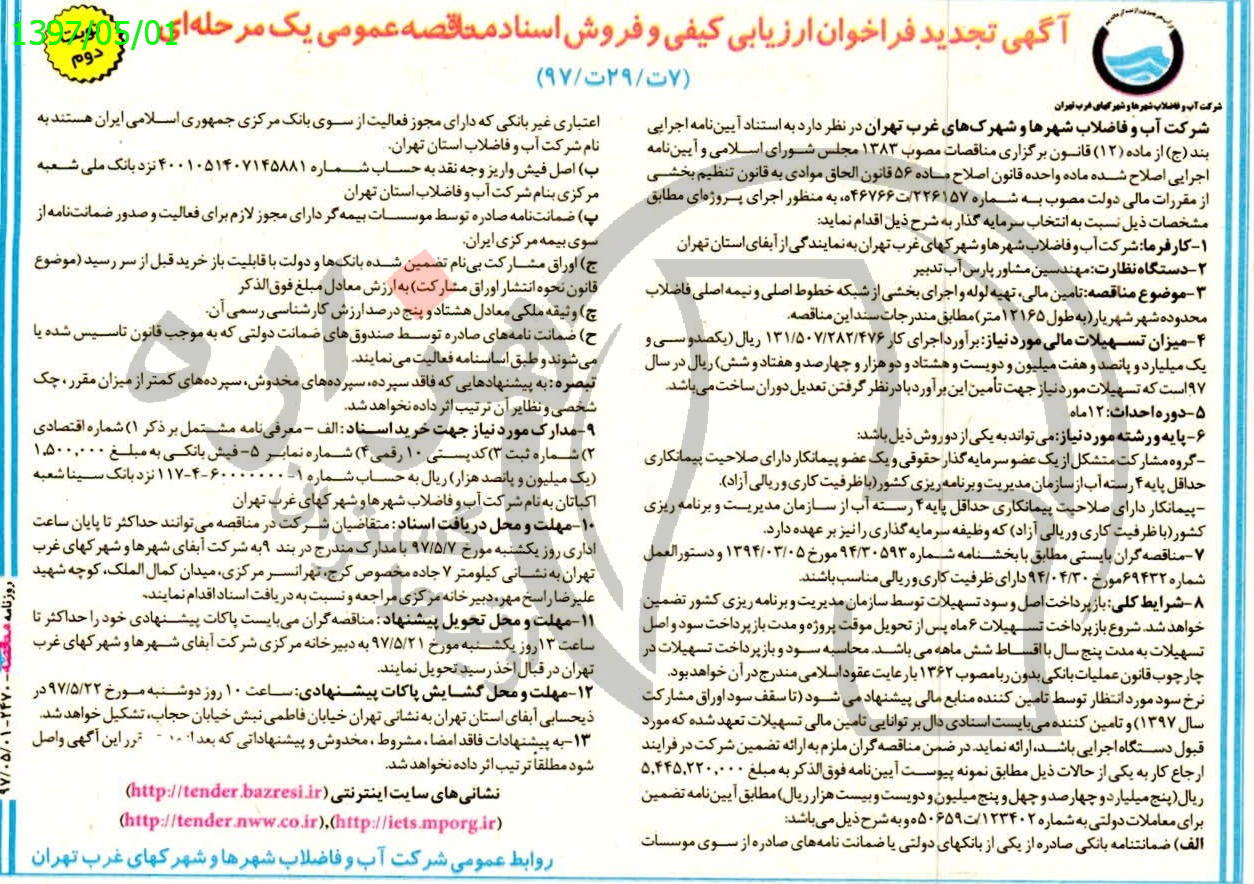 1397/05/01
نوبت دوم
آگهی تجدید فراخوان ارزیابی کیفی و فروش اسناد مناقصه عمومی یک مرحله‌ای
(۷ت/۲۹ت/۹۷)
شرکت آب و فاضلاب شهرها و شهرکهای غرب تهران
شرکت آب و فاضلاب شهرها و شهرک‌های غرب تهران در نظر دارد به استناد آیین‌نامه اجرایی
بند (ج) از ماده (۱۲) قانون برگزاری مناقصات مصوب ۱۳۸۳ مجلس شورای اسلامی و آیین‌نامه
اجرایی اصلاح شده ماده واحده قانون اصلاح ماده ۵۶ قانون الحاق موادی به قانون تنظیم بخشی
از مقررات مالی دولت مصوب به شماره ۲۲۶۱۵۷/ت۴۶۷۶۶ه، به منظور اجرای پروژه‌ای مطابق
مشخصات ذیل نسبت به انتخاب سرمایه گذار به شرح ذیل اقدام نماید:
۱-کارفرما: شرکت آب و فاضلاب شهرها و شهرکهای غرب تهران به نمایندگی از آبفای استان تهران
۲-دستگاه نظارت: مهندسین مشاور پارس آب تدبیر
۳-موضوع مناقصه: تامین مالی، تهیه لوله و اجرای بخشی از شبکه خطوط اصلی و نیمه اصلی فاضلاب
محدوده شهر شهریار (به طول ۱۲۱۶۵متر) مطابق مندرجات سند این مناقصه.
۴-میزان تسهیلات مالی مورد نیاز: برآورد اجرای کار ۱۳۱/۵۰۷/۲۸۲/۴۷۶ ریال (یکصدو سی و
یک میلیارد و پانصد و هفت میلیون و دویست و هشتاد و دو هزار و چهارصد و هفتاد و شش) ریال در سال
۹۷ است که تسهیلات مورد نیاز جهت تأمین این برآورد با در نظر گرفتن تعدیل دوران ساخت می‌باشد.
۵-دوره احداث: ۱۲ماه
۶-پایه و رشته مورد نیاز: می‌تواند به یکی از دو روش ذیل باشد:
-گروه مشارکت متشکل از یک عضو سرمایه گذار حقوقی و یک عضو پیمانکار دارای صلاحیت پیمانکاری
حداقل پایه ۴ رسته آب از سازمان مدیریت و برنامه ریزی کشور (با ظرفیت کاری و ریالی آزاد).
-پیمانکار دارای صلاحیت پیمانکاری حداقل پایه ۴ رسته آب از سازمان مدیریت و برنامه ریزی
کشور (با ظرفیت کاری و ریالی آزاد) که وظیفه سرمایه گذاری را نیز بر عهده دارد.
۷-مناقصه گران بایستی مطابق با بخشنامه شماره ۹۴/۳۰۵۹۳ مورخ ۱۳۹۴/۰۳/۰۵ و دستورالعمل
شماره ۶۹۴۳۲مورخ ۹۴/۰۴/۳۰ دارای ظرفیت کاری و ریالی مناسب باشند.
۸-شرایط کلی: باز پرداخت اصل و سود تسهیلات توسط سازمان مدیریت و برنامه ریزی کشور تضمین
خواهد شد. شروع باز پرداخت تسهیلات ۶ ماه پس از تحویل موقت پروژه و مدت باز پرداخت سود و اصل
تسهیلات به مدت پنج سال با اقساط شش ماهه می باشد. محاسبه سود و باز پرداخت تسهیلات در
چارچوب قانون عملیات بانکی بدون ربا مصوب ۱۳۶۲ با رعایت عقود اسلامی مندرج در آن خواهد بود.
نرخ سود مورد انتظار توسط تامین کننده منابع مالی پیشنهاد می شود (تا سقف سود اوراق مشارکت
سال ۱۳۹۷) و تامین کننده می‌بایست اسنادی دال بر توانایی تامین مالی تسهیلات تعهد شده که مورد
قبول دستگاه اجرایی باشد، ارائه نماید. در ضمن مناقصه گران ملزم به ارائه تضمین شرکت در فرایند
ارجاع کار به یکی از حالات ذیل مطابق نمونه پیوست آیین‌نامه فوق‌الذکر به مبلغ ۵,۴۴۵,۲۲۰,۰۰۰
ریال(پنج میلیارد و چهارصد و چهل و پنج میلیون و دویست و بیست هزار ریال) مطابق آیین‌نامه تضمین
برای معاملات دولتی به شماره ۱۲۳۴۰۲/ت۵۰۶۵۹ه و به شرح ذیل می‌باشد:
الف) ضمانتنامه بانکی صادره از یکی از بانکهای دولتی یا ضمانت نامه‌های صادره از سوی موسسات
اعتباری غیر بانکی که دارای مجوز فعالیت از سوی بانک مرکزی جمهوری اسلامی ایران هستند به
نام شرکت آب و فاضلاب استان تهران.
ب) اصل فیش واریز وجه نقد به حساب شماره ۴۰۰۱۰۵۱۴۰۷۱۴۵۸۸۱ نزد بانک ملی شعبه
مرکزی بنام شرکت آب و فاضلاب استان تهران
پ) ضمانت‌نامه صادره توسط موسسات بیمه‌گر دارای مجوز لازم برای فعالیت و صدور ضمانت‌نامه از
سوی بیمه مرکزی ایران.
ج) اوراق مشارکت بی‌نام تضمین شده بانک‌ها و دولت با قابلیت باز خرید قبل از سر رسید (موضوع
قانون نحوه انتشار اوراق مشارکت) به ارزش معادل مبلغ فوق‌الذکر
چ) وثیقه ملکی معادل هشتاد و پنج درصد ارزش کارشناسی رسمی آن.
ح) ضمانت نامه‌های صادره توسط صندوق‌های ضمانت دولتی که به موجب قانون تاسیس شده یا
می‌شوند و طبق اساسنامه فعالیت می‌نمایند.
تبصره: به پیشنهادهایی که فاقد سپرده، سپرده‌های مخدوش، سپرده‌های کمتر از میزان مقرر، چک
شخصی و نظایر آن ترتیب اثر داده نخواهد شد.
۹-مدارک مورد نیاز جهت خرید اسناد: الف - معرفی‌نامه مشتمل بر ذکر ۱) شماره اقتصادی
۲) شماره ثبت ۳)کدپستی ۱۰ رقمی ۴) شماره نمابر ۵- فیش بانکی به مبلغ ۱,۵۰۰,۰۰۰
(یک میلیون و پانصد هزار) ریال به حساب شماره ۱-۶۰۰۰۰۰۰۰-۴-۱۱۷ نزد بانک سینا شعبه
اکباتان به نام شرکت آب و فاضلاب شهرها و شهرکهای غرب تهران
۱۰-مهلت و محل دریافت اسناد: متقاضیان شرکت در مناقصه می‌توانند حداکثر تا پایان ساعت
اداری روز یکشنبه مورخ ۹۷/۵/۷ با مدارک مندرج در بند ۹به شرکت آبفای شهرها و شهرکهای غرب
تهران به نشانی کیلومتر ۷ جاده مخصوص کرج، تهرانسر مرکزی، میدان کمال الملک، کوچه شهید
علیرضا راسخ مهر، دبیرخانه مرکزی مراجعه و نسبت به دریافت اسناد اقدام نمایند.
۱۱-مهلت و محل تحویل پیشنهاد: مناقصه گران می‌بایست پاکات پیشنهادی خود را حداکثر تا
ساعت ۱۳ روز یکشنبه مورخ ۹۷/۵/۲۱ به دبیرخانه مرکزی شرکت آبفای شهرها و شهرکهای غرب
تهران در قبال اخذ رسید تحویل نمایند.
۱۲-مهلت و محل گشایش پاکات پیشنهادی: ساعت ۱۰ روز دوشنبه مورخ ۹۷/۵/۲۲ در
ذیحسابی آبفای استان تهران به نشانی تهران خیابان فاطمی نبش خیابان حجاب، تشکیل خواهد شد.
۱۳-به پیشنهادات فاقد امضا، مشروط، مخدوش و پیشنهاداتی که بعد از این آگهی واصل
شود مطلقاً ترتیب اثر داده نخواهد شد.
نشانی‌های سایت اینترنتی (http://tender.bazresi.ir)
(http://tender.nww.co.ir),(http://iets.mporg.ir)
روابط عمومی شرکت آب و فاضلاب شهرها و شهرکهای غرب تهران
روزنامه مناقصه - ۲۴۷۰ - ۹۷/۰۵/۰۱